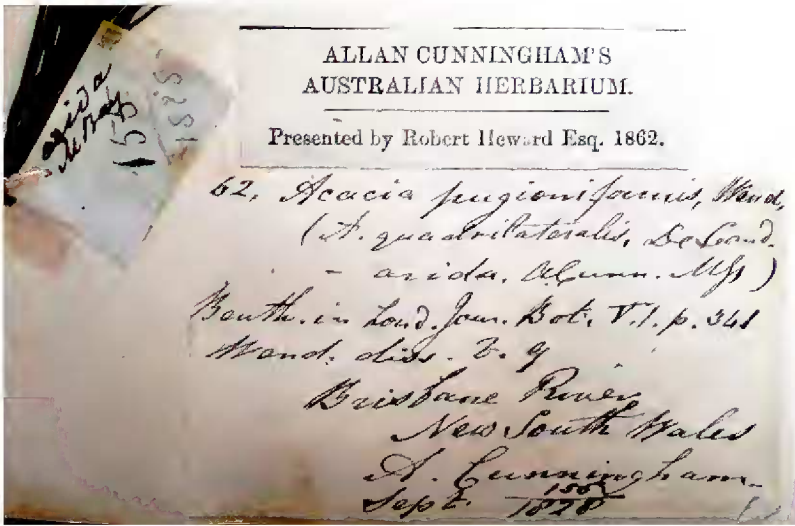 arida
155
1828
ALLAN CUNNINGHAM'S
AUSTRALIAN HERBARIUM.
Presented by Robert Heward Esq. 1862.
62, Acacia pugioniformis, Wend,
(A. quadrilateralis, De Cand.
- arida. A.Cunn. Mss)
Benth. in Lond. Jour. Bot. V.1. p. 341
Wend. diss. t. 9
Brisbane River
New South Wales
A. Cunningham.
Sept. 155/1828